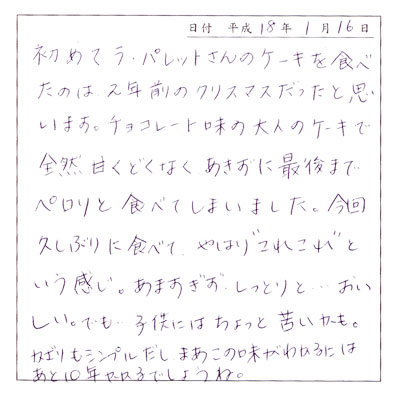 日付 平成18年1月16日
初めてラ・パレットさんのケーキを食べ
たのは2年前のクリスマスだったと思
います。チョコレート味の大人のケーキで
全然甘くどくなく あきずに最後まで
ペロリと食べてしまいました。今回
久しぶりに食べて、やはり"これこれ"と
いう感じ。あますぎず、しっとりと…おい
しい。でも…子供にはちょっと苦いかも。
かざりもシンプルだし まあこの味がわかるには
あと10年かかるでしょうね。